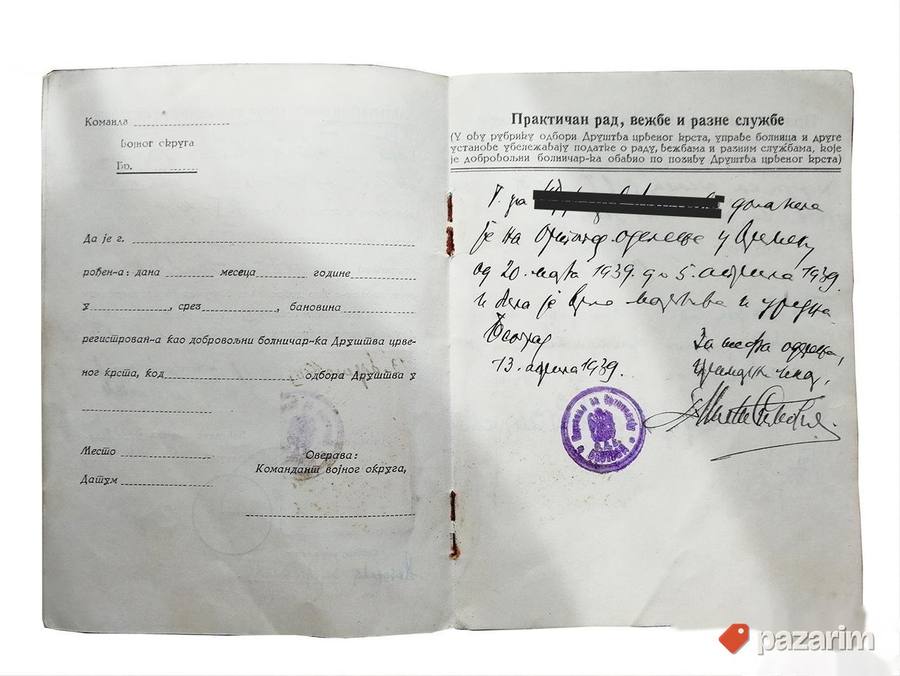 Команда
војног округа
Бр.
Да је г.
рођен-а: дана месеца године
у , срез , бановина
регистрован-а као добровољни болничар-ка Друштва црве-
ног крста, код одбора Друштва у
Место
Датум
Оверава:
Командант војног округа,
Практичан рад, вежбе и разне службе
(У ову рубрику одбори Друштва црвеног крста, управе болница и друге
установе убележавају податке о раду, вежбама и разним службама, које
је добровољни болничар-ка обавио по позиву Друштва црвеног крста)
Г-ђа долазила
је на одељење у
од 20. марта 1939. до 5. априла 1939.
и била је врло и уредна.
Београд
13. априла 1939.
За шефа одељења,
pazarim